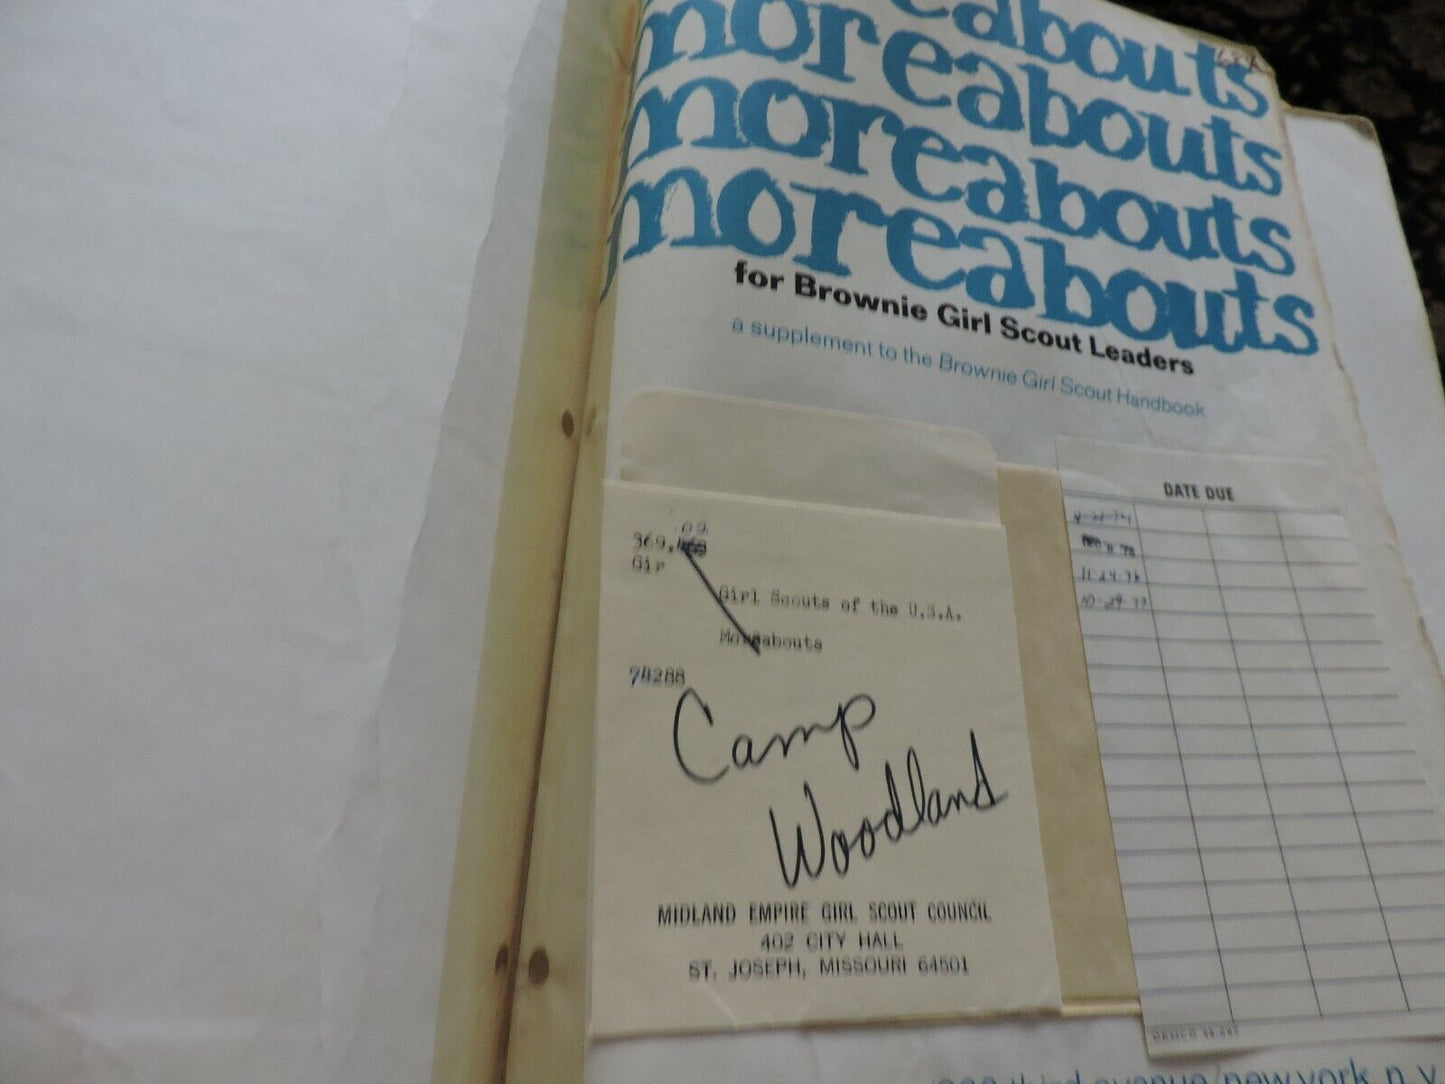 moreabouts
moreabouts
moreabouts
for Brownie Girl Scout Leaders
a supplement to the Brownie Girl Scout Handbook
02
369.
Gir
Girl Scouts of the U.S.A.
Moreabouts
74288
Camp
Woodland
MIDLAND EMPIRE GIRL SCOUT COUNCIL
402 CITY HALL
ST. JOSEPH, MISSOURI 64501
DATE DUE
10-29-77
third avenue/new york, n.y.